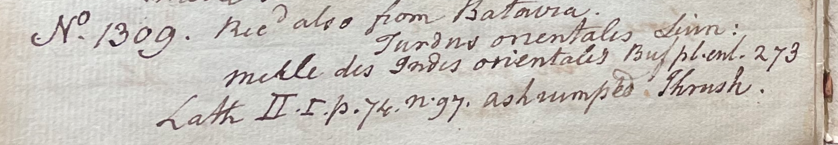 No. 1309. Recd also from Batavia.
Turdus orientalis Linn:
merle des Indes orientales Buf pl. enl. 273
Lath II. I. p. 74. n. 97. ashrumped Thrush.